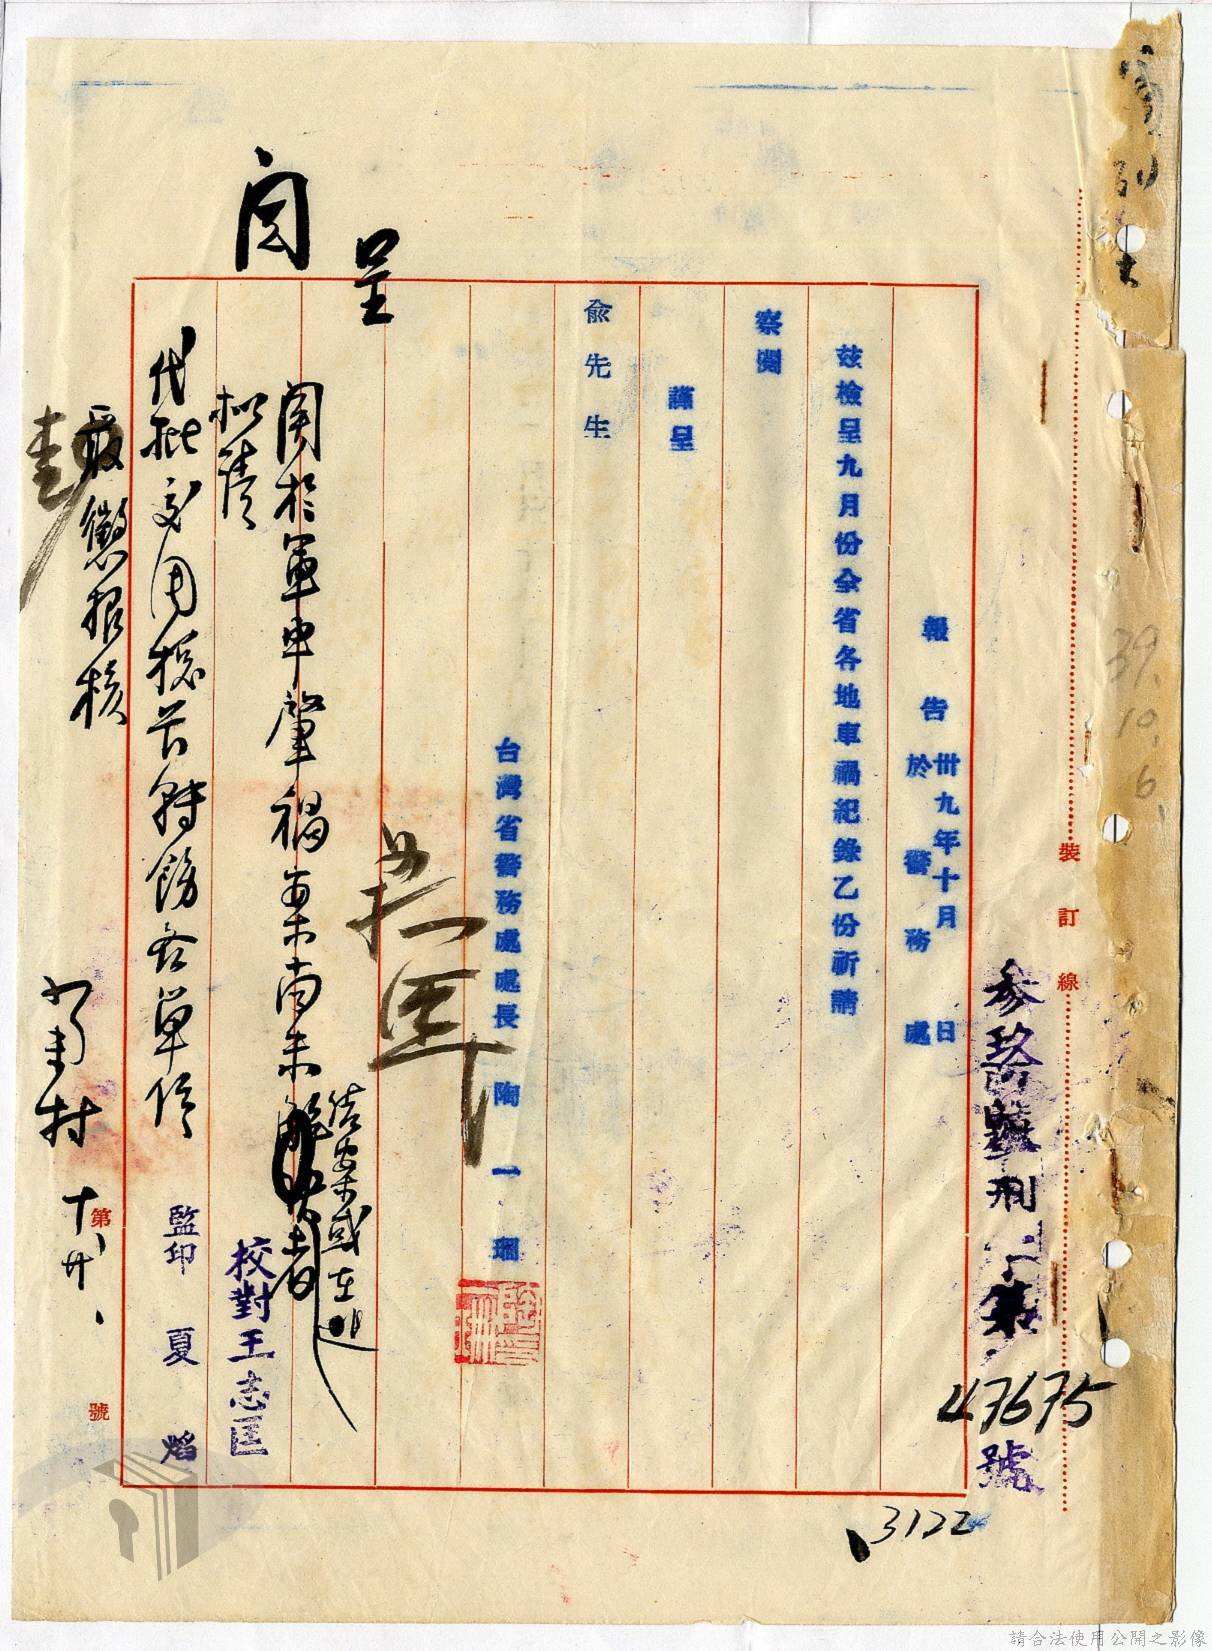 參玖 刑 第
47675
號
3122
裝訂線
39.10.6
報告 卅九年十月 日
於警務處
茲檢呈九月份全省各地車禍紀錄乙份祈請
察閱
謹呈
俞先生
台灣省警務處處長 陶一珊
呈
閱
關於軍車肇禍案尚未
結案或在
者
擬請
代批交周 轉飭各單位
嚴懲報核
十、廿、
校對王志匡
監印 夏焰
第 號
請合法使用公開之影像